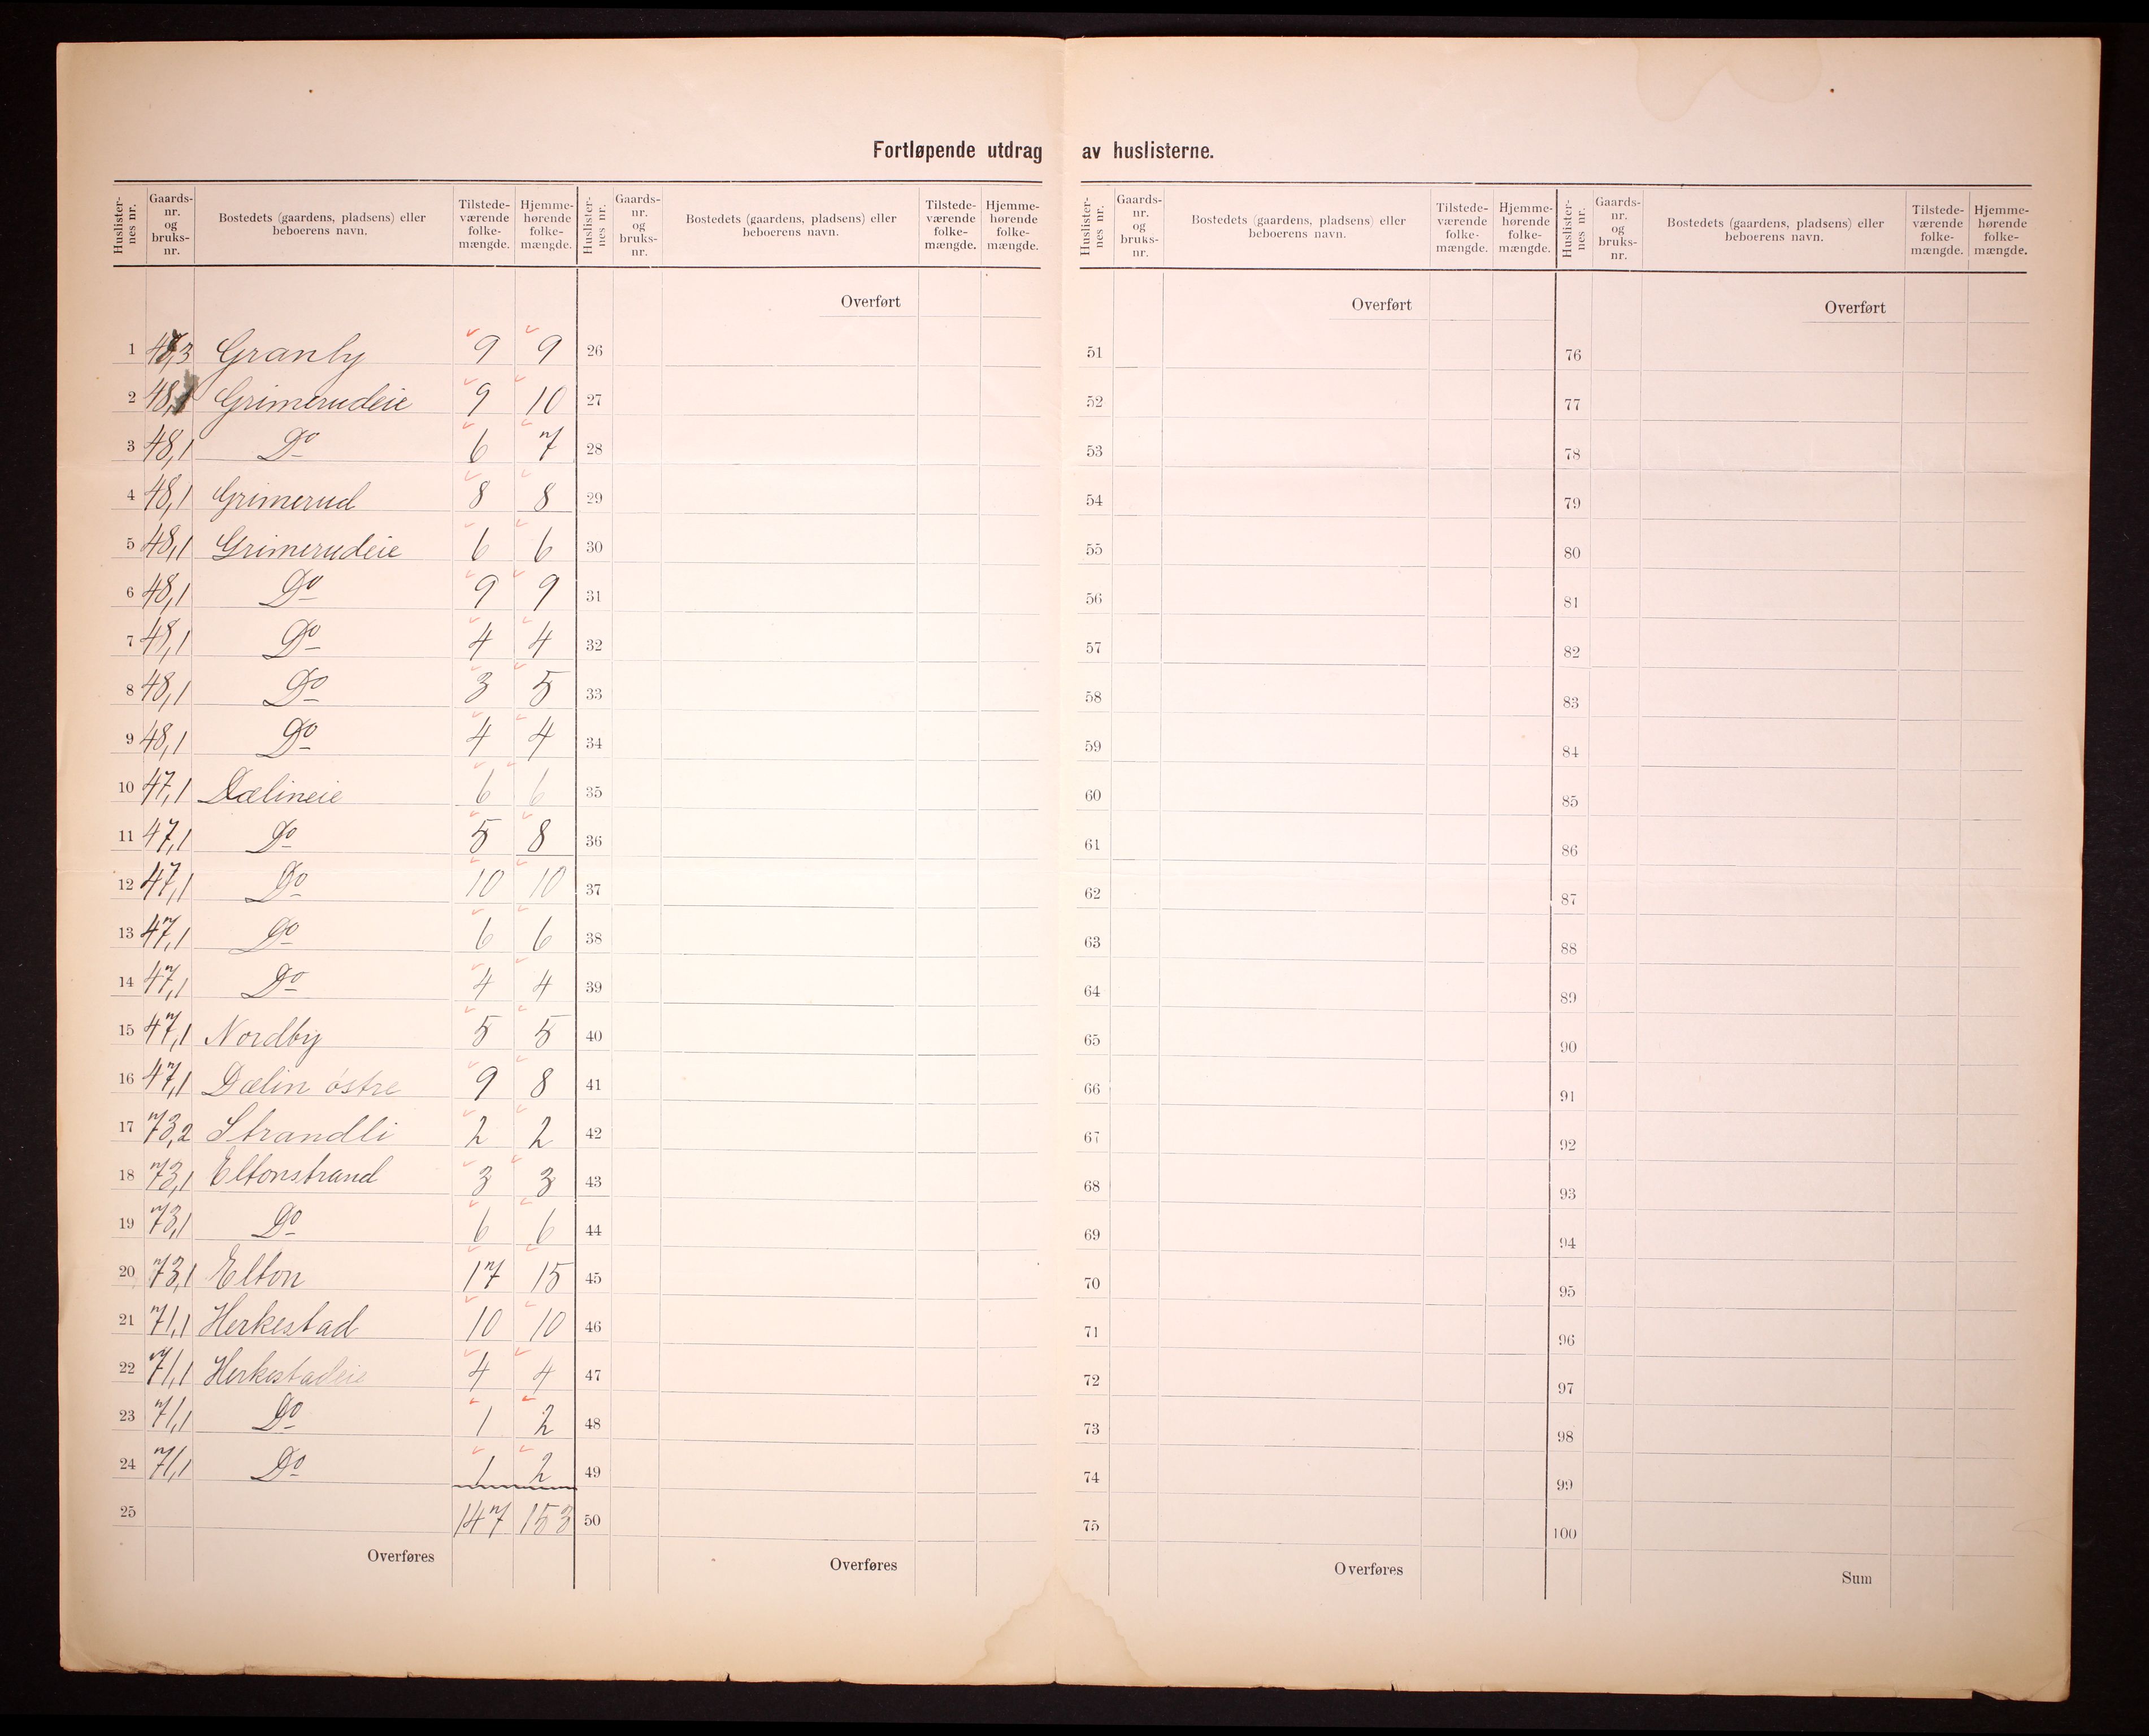 Fortløpende utdrag av huslisterne.
Huslisternes nr. Gaards-nr. og bruks-nr. Bostedets (gaardens, pladsens) eller beboerens navn. Tilstede-værende folke-mængde. Hjemme-hørende folke-mængde.
1 47,3 Granby 9 9
2 48,1 Grimerudeie 9 10
3 48,1 Do 6 7
4 48,1 Grimerud 8 8
5 48,1 Grimerudeie 6 6
6 48,1 Do 9 9
7 48,1 Do 4 4
8 48,1 Do 3 5
9 48,1 Do 4 4
10 47,1 Dælineie 6 6
11 47,1 Do 5 8
12 47,1 Do 10 10
13 47,1 Do 6 6
14 47,1 Do 4 4
15 47,1 Nordby 5 5
16 47,1 Dælin østre 9 8
17 73,2 Strandli 2 2
18 73,1 Eltonstrand 3 3
19 73,1 Do 6 6
20 73,1 Elton 17 15
21 71,1 Herkestad 10 10
22 71,1 Herkestadeie 4 4
23 71,1 Do 1 2
24 71,1 Do 1 2
25 147 153
Overføres
Huslisternes nr. Gaards-nr. og bruks-nr. Bostedets (gaardens, pladsens) eller beboerens navn. Tilstede-værende folke-mængde. Hjemme-hørende folke-mængde.
Overført
26
27
28
29
30
31
32
33
34
35
36
37
38
39
40
41
42
43
44
45
46
47
48
49
50
Overføres
Huslisternes nr. Gaards-nr. og bruks-nr. Bostedets (gaardens, pladsens) eller beboerens navn. Tilstede-værende folke-mængde. Hjemme-hørende folke-mængde.
Overført
51
52
53
54
55
56
57
58
59
60
61
62
63
64
65
66
67
68
69
70
71
72
73
74
75
Overføres
Huslisternes nr. Gaards-nr. og bruks-nr. Bostedets (gaardens, pladsens) eller beboerens navn. Tilstede-værende folke-mængde. Hjemme-hørende folke-mængde.
Overført
76
77
78
79
80
81
82
83
84
85
86
87
88
89
90
91
92
93
94
95
96
97
98
99
100
Sum